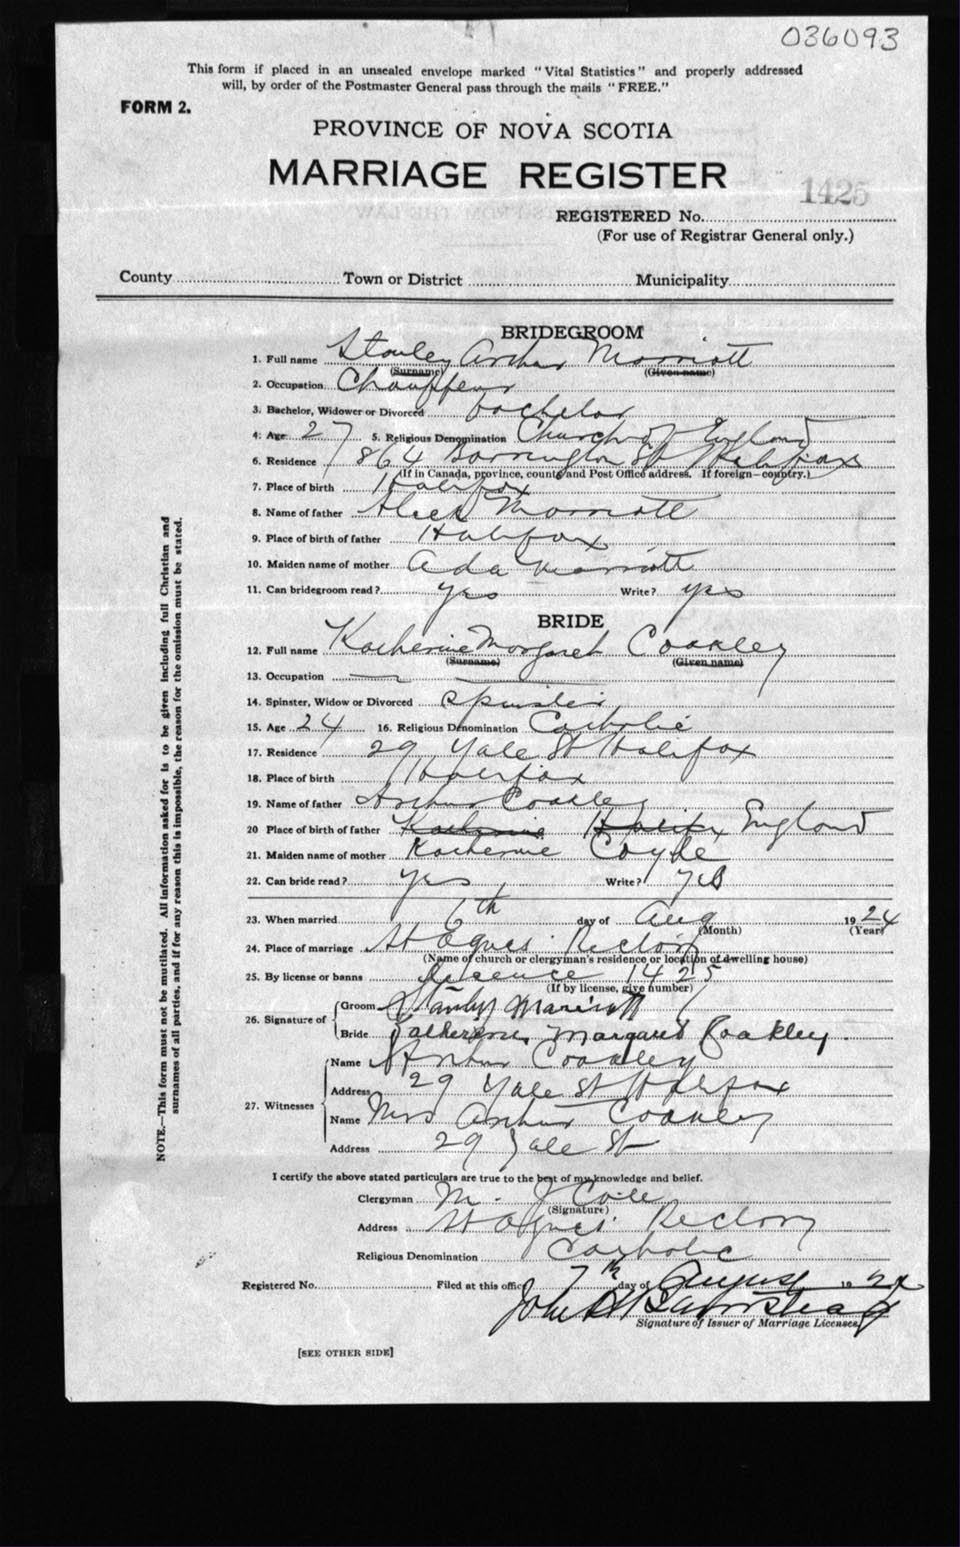 036093
This form if placed in an unsealed envelope marked "Vital Statistics" and properly addressed
will, by order of the Postmaster General pass through the mails "FREE."
FORM 2.
PROVINCE OF NOVA SCOTIA
MARRIAGE REGISTER
1425
REGISTERED No.
(For use of Registrar General only.)
County Town or District Municipality
BRIDEGROOM
1. Full name Stanley Arthur Marriott
(Surname) (Given name)
2. Occupation Chauffeur
3. Bachelor, Widower or Divorced bachelor
4. Age 27 5. Religious Denomination Church of England
6. Residence 864 Barrington St Halifax
(If in Canada, province, county and Post Office address. If foreign—country.)
7. Place of birth Halifax
8. Name of father Marriott
9. Place of birth of father Halifax
10. Maiden name of mother Ada Marriott
11. Can bridegroom read? yes Write? yes
BRIDE
12. Full name Katherine Margaret Coakley
(Surname) (Given name)
13. Occupation
14. Spinster, Widow or Divorced spinster
15. Age 24 16. Religious Denomination Catholic
17. Residence 29 Yale St Halifax
18. Place of birth Halifax
19. Name of father Arthur Coakley
20 Place of birth of father Katherine Halifax England
21. Maiden name of mother Katherine Coyle
22. Can bride read? yes Write? yes
23. When married 6th day of Aug 1924
(Month) (Year)
24. Place of marriage St Agnes Rectory
(Name of church or clergyman's residence or location of dwelling house)
25. By license or banns 1425
(If by license, give number)
26. Signature of Groom Stanley Marriott
Bride Catherine Margaret Coakley.
27. Witnesses Name Arthur Coakley
Address 29 Yale St Halifax
Name Mrs Arthur Coakley
Address 29 Yale St
I certify the above stated particulars are true to the best of my knowledge and belief.
Clergyman M. J Cole
(Signature)
Address St Agnes' Rectory
Religious Denomination Catholic
Registered No. Filed at this office 7th day of August 1924
John
Signature of Issuer of Marriage Licenses.
[SEE OTHER SIDE]
NOTE.—This form must not be mutilated. All information asked for is to be given including full Christian and
surnames of all parties, and if for any reason this is impossible, the reason for the omission must be stated.